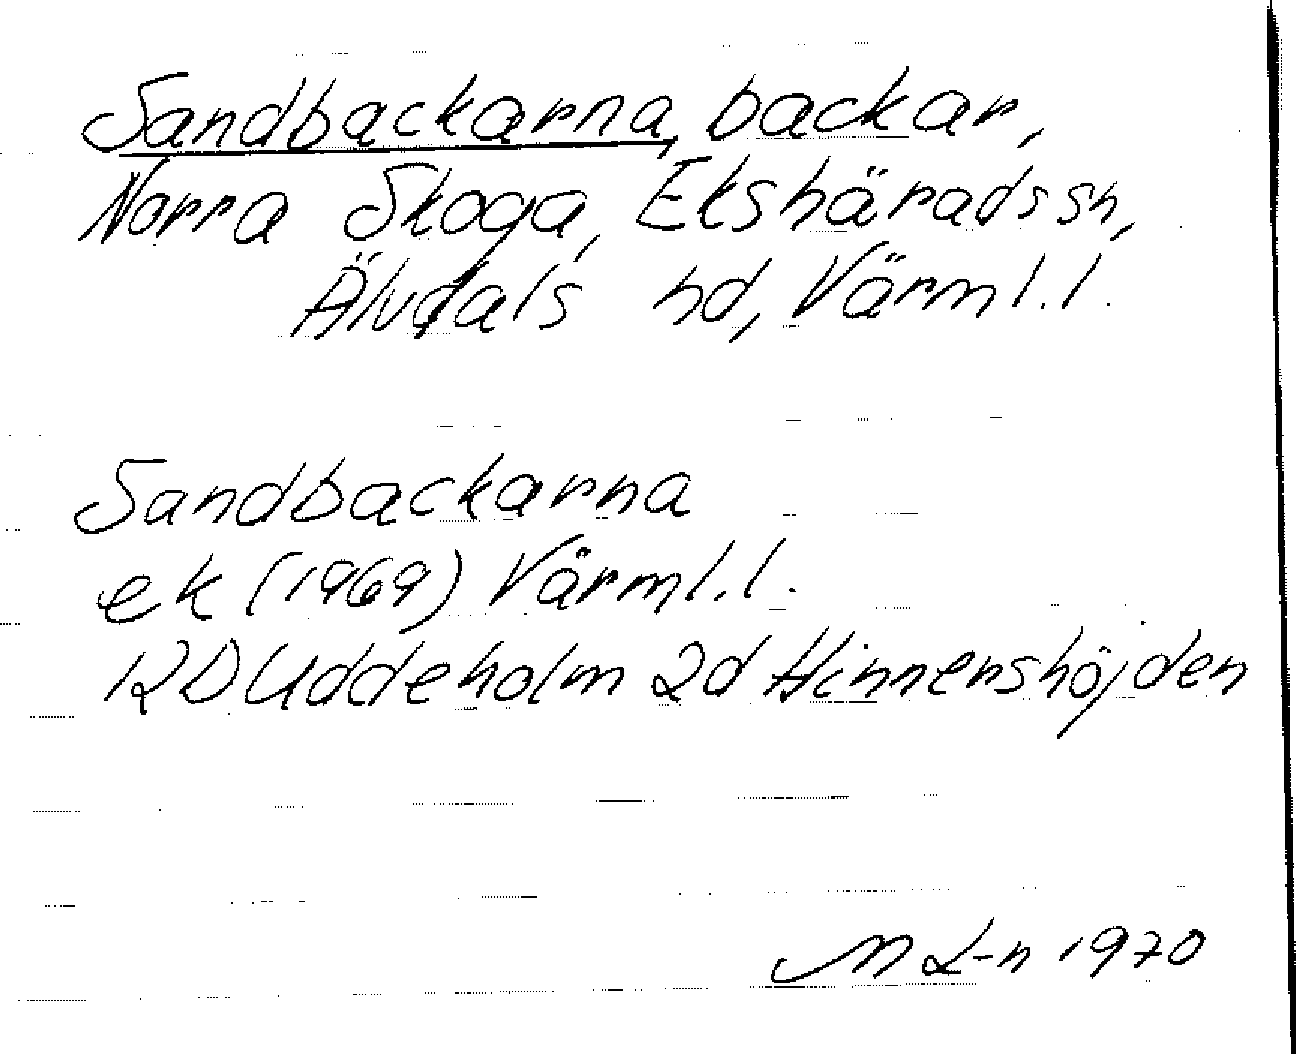 Sandbackarna, backar,
Norra Skoga, Ekshärads sn,
Älvdals hd, Värml. l.
Sandbackarna
ek (1969) Värml. l.
12D Uddeholm 2d Hinnenshöjden
M L-n 1970